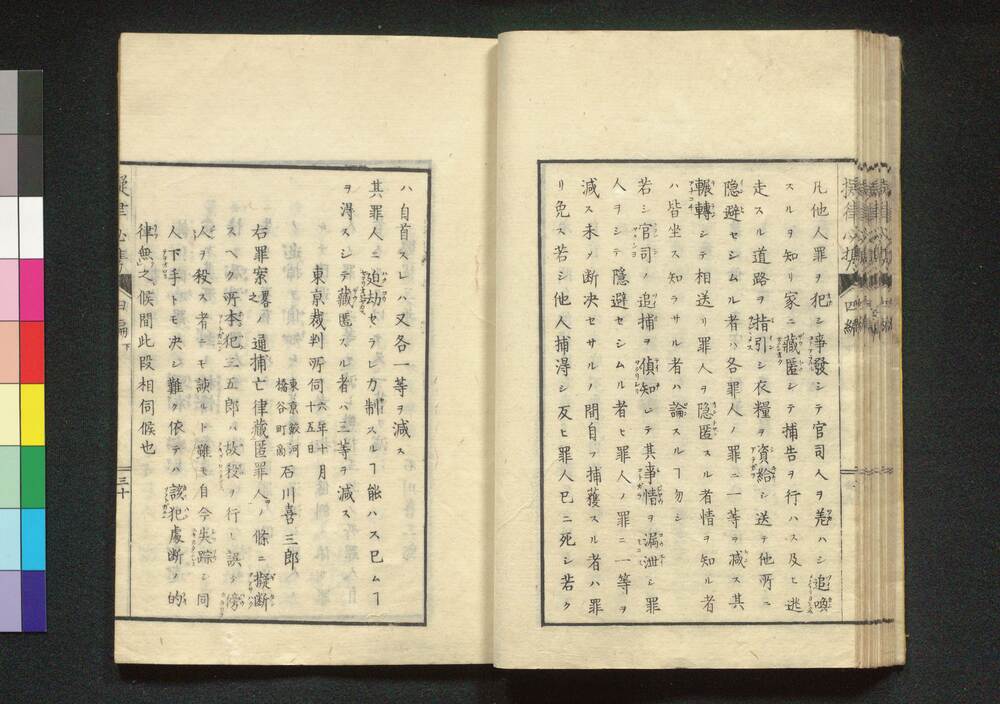 凡他人罪ヲ犯シ事發シテ官司人ヲ差ハシ追喚
スルヲ知リ家ニ藏匿シテ捕告ヲ行ハス及ヒ逃
走スル道路ヲ指引シ衣糧ヲ資給シ送テ他所ニ
隱避セシムル者ハ各罪人ノ罪ニ一等ヲ減ス其
輾轉シテ相送リ罪人ヲ隱匿スル者情ヲ知ル者
ハ皆坐ス知ラサル者ハ論スルヿ勿シ
若シ官司ノ追捕ヲ偵知シテ其事情ヲ漏泄シ罪
人ヲシテ隱避セシムル者ヒ罪人ノ罪ニ一等ヲ
減ス未ノ斷决セサルノ間自ラ捕獲スル者ハ罪
リ免ス若シ他人捕得シ及ヒ罪人已ニ死シ若ク
四編
ハ自首スレハ又各一等ヲ減ス
其罪人ニ迫劫セラレ力制スルヿ能ハス已ムヿ
ヲ得スシテ藏匿スル者ハ三等ヲ減ス
東京裁判所伺六年十月十五日
東京鮫河橋谷町商 石川喜三郎
右罪案畧之ノ逋捕亡律藏匿罪人ノ條ニ擬斷
スヘク所本犯三五郎ハ故殺ヲ行レ誤テ傍
人ヲ殺ス者ニモ諌ルト雖モ自今失踪シ同
人下手トモ决シ難ク依テハ該犯處斷ノ的
律無之候間此段相伺候也
四編下
三十